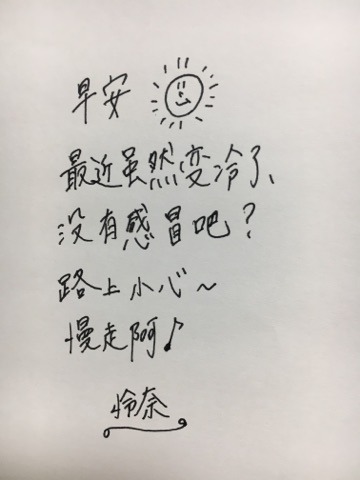 早安
最近虽然变冷了、
没有感冒吧？
路上小心~
慢走阿♪
怜奈